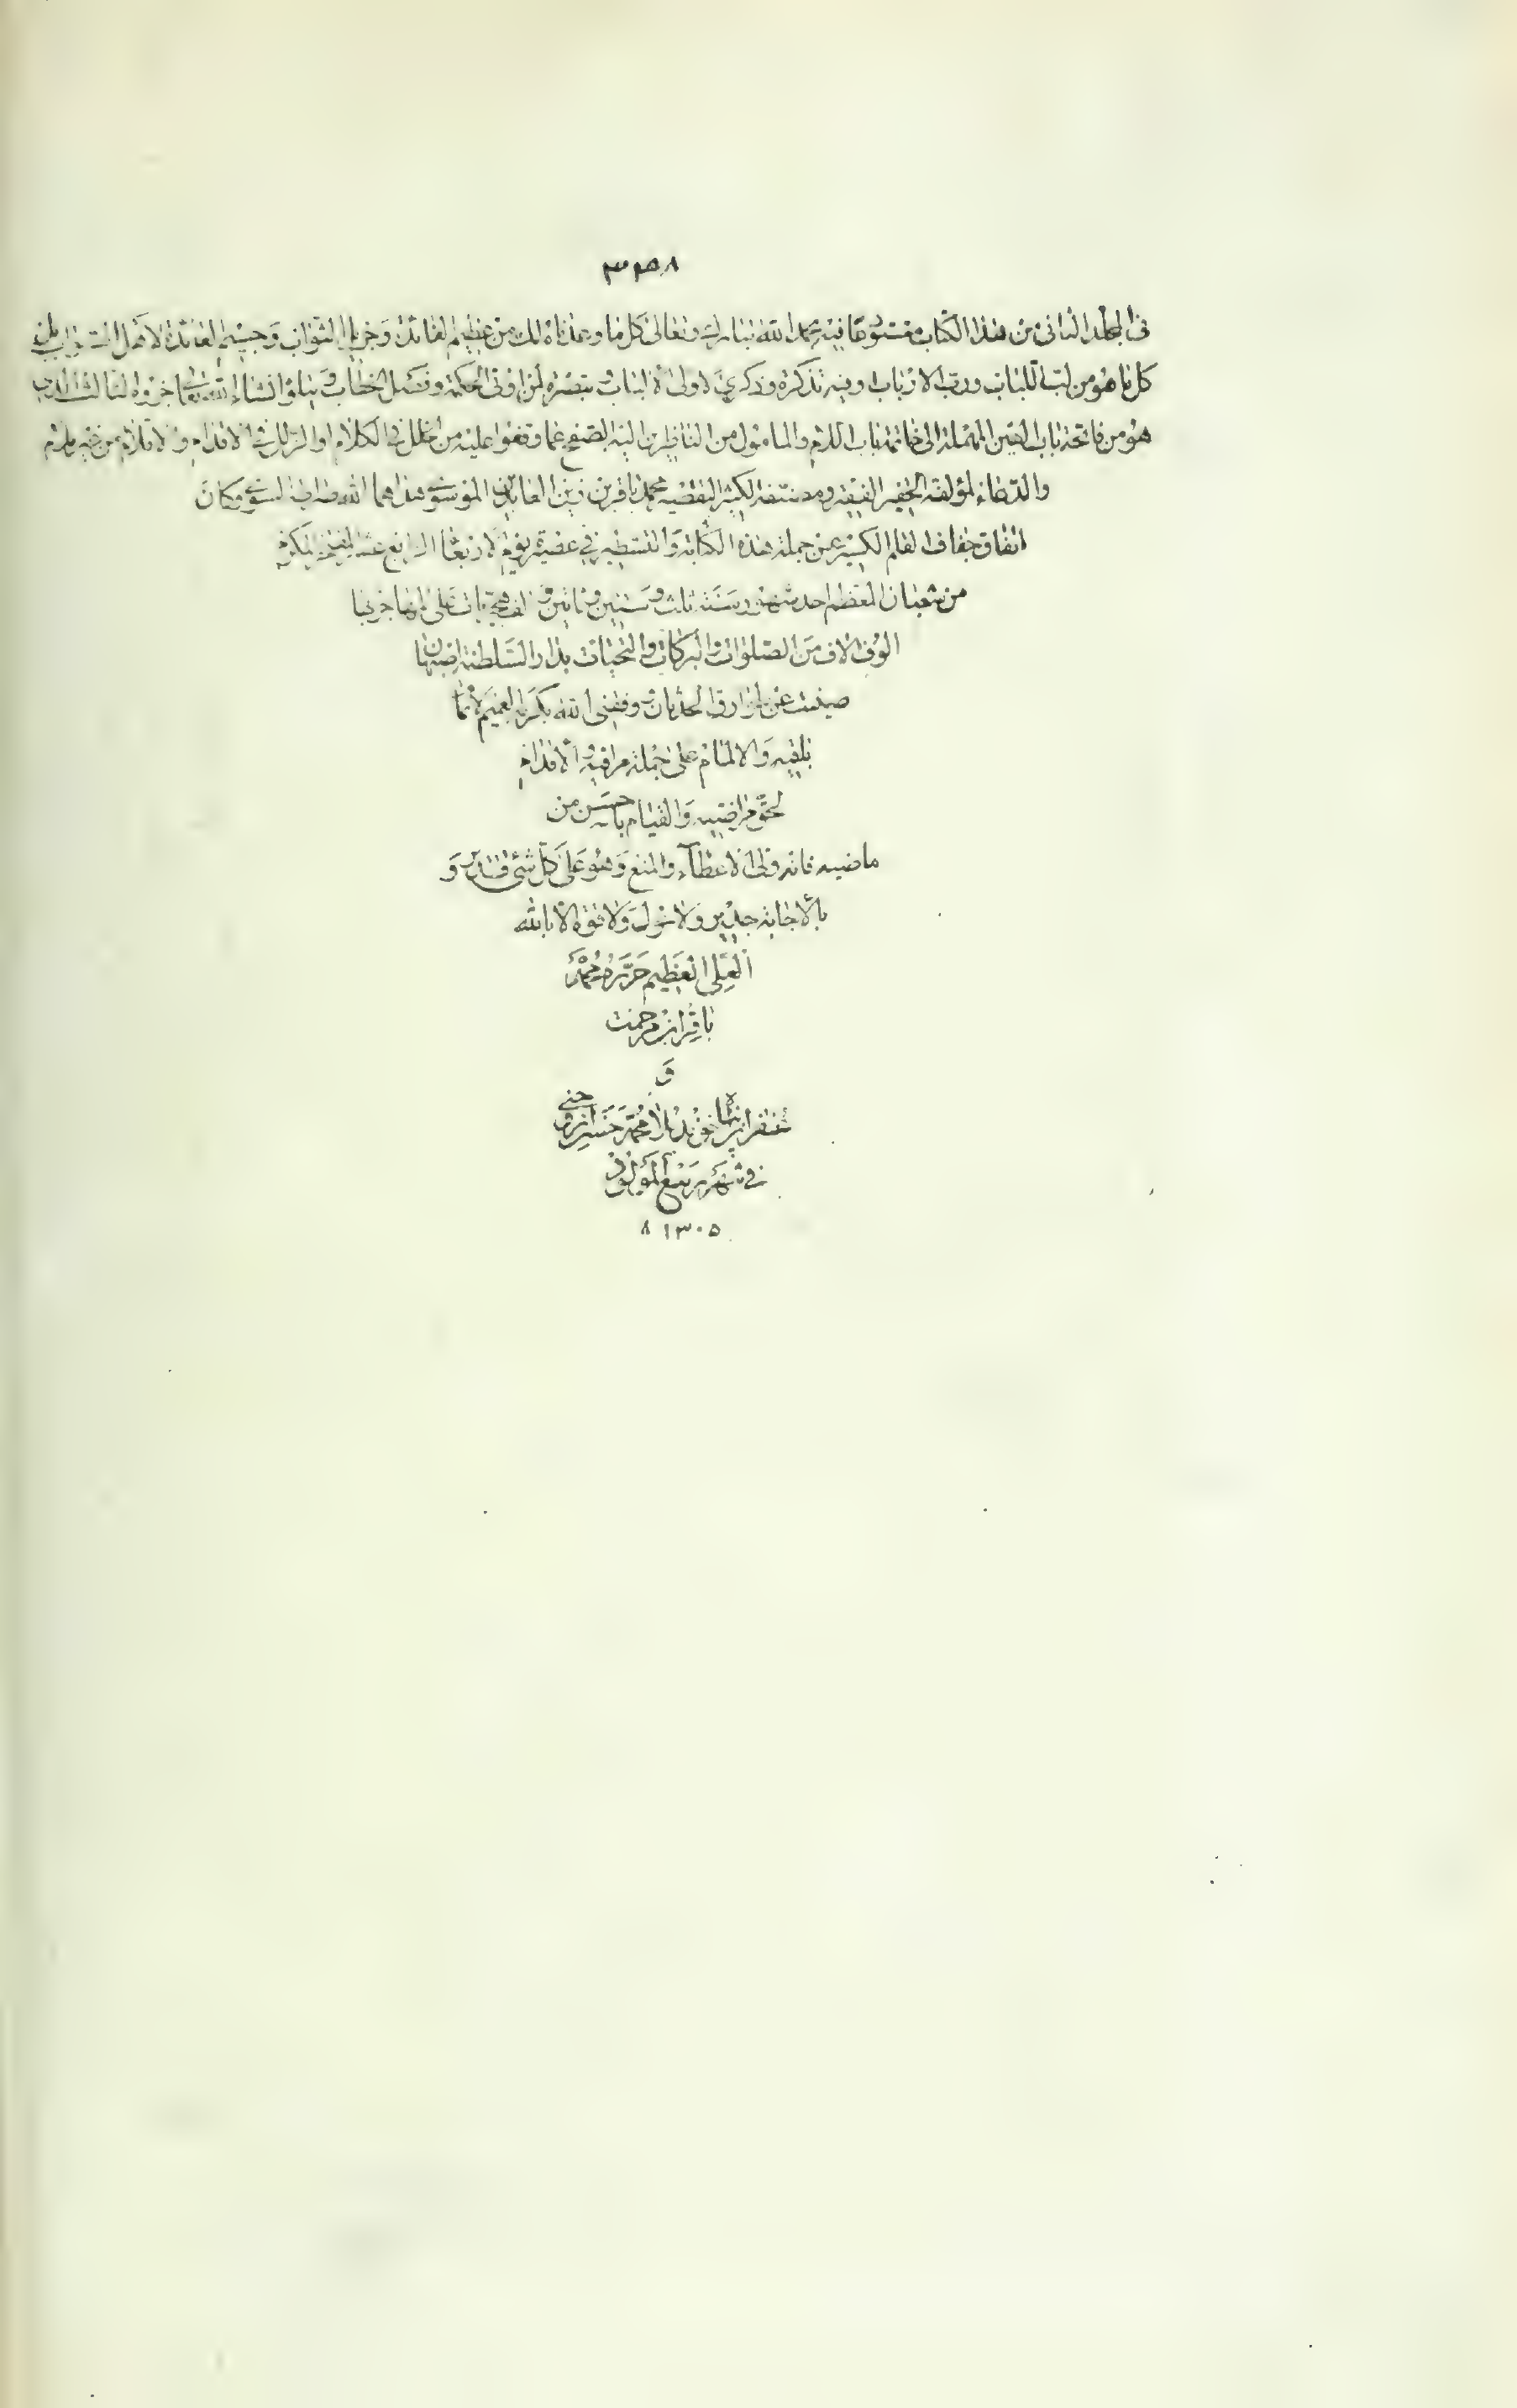 ٣٥٨
فى المجلد الثانى من هذا الكتاب مستوفا فيه بحمد الله تبارك وتعالى كل ما وعدناه لك من عظيم الفائدة وجزيل الثواب وجسيم العائدة لأهل
كل ما هو من لب اللباب ورب الارباب وفيه تذكرة وذكرى لاولى الالباب وتبصرة لمن اوتى الحكمة وفصل الخطاب ويتلوا انشاء الله تعالى جزؤه الثالث الذى
هو من فاتحة باب العين المهملة الى خاتمة باب اللام والمامول من الناظرين اليه الصفح عما وقفوا عليه من الخلل فى الكلام او الزلل فى الاقدام والاقلام من غير ملام
والدعاء لمؤلفه الحقير الفقير ومصنفه الكثير التقصير محمد باقر بن زين العابدين الموسوى هداهما الله صراط السوى وكان
اتفاق جفاف القلم الكسير عن جملة هذه الكتابة والتسطير فى عصيرة يوم الاربعا الرابع عشر
من شعبان المعظم احد شهور سنة ثلث وستين ومأتين والف هجريات على مهاجريها
الوف الاف من الصلوات والبركات والتحيات بدار السلطنة اصبهان
صينت عن طوارق الحدثان وفقنى الله بكرمه العميم لاتمام
باقيه والالمام على جملة مراقيه والاقدام
لحق مراضيه والقيام باحسن من
ماضيه فانه ولى الاعطاء والمنع وهو على كل شئ قدير و
بالاجابة جدير ولا حول ولا قوة الا بالله
العلى العظيم حرره محمد
باقر ابن مرحمت
و
غفران پناه اخوند ملا محمد حسن
فى شهر ربيع المولود
١٣٠٥